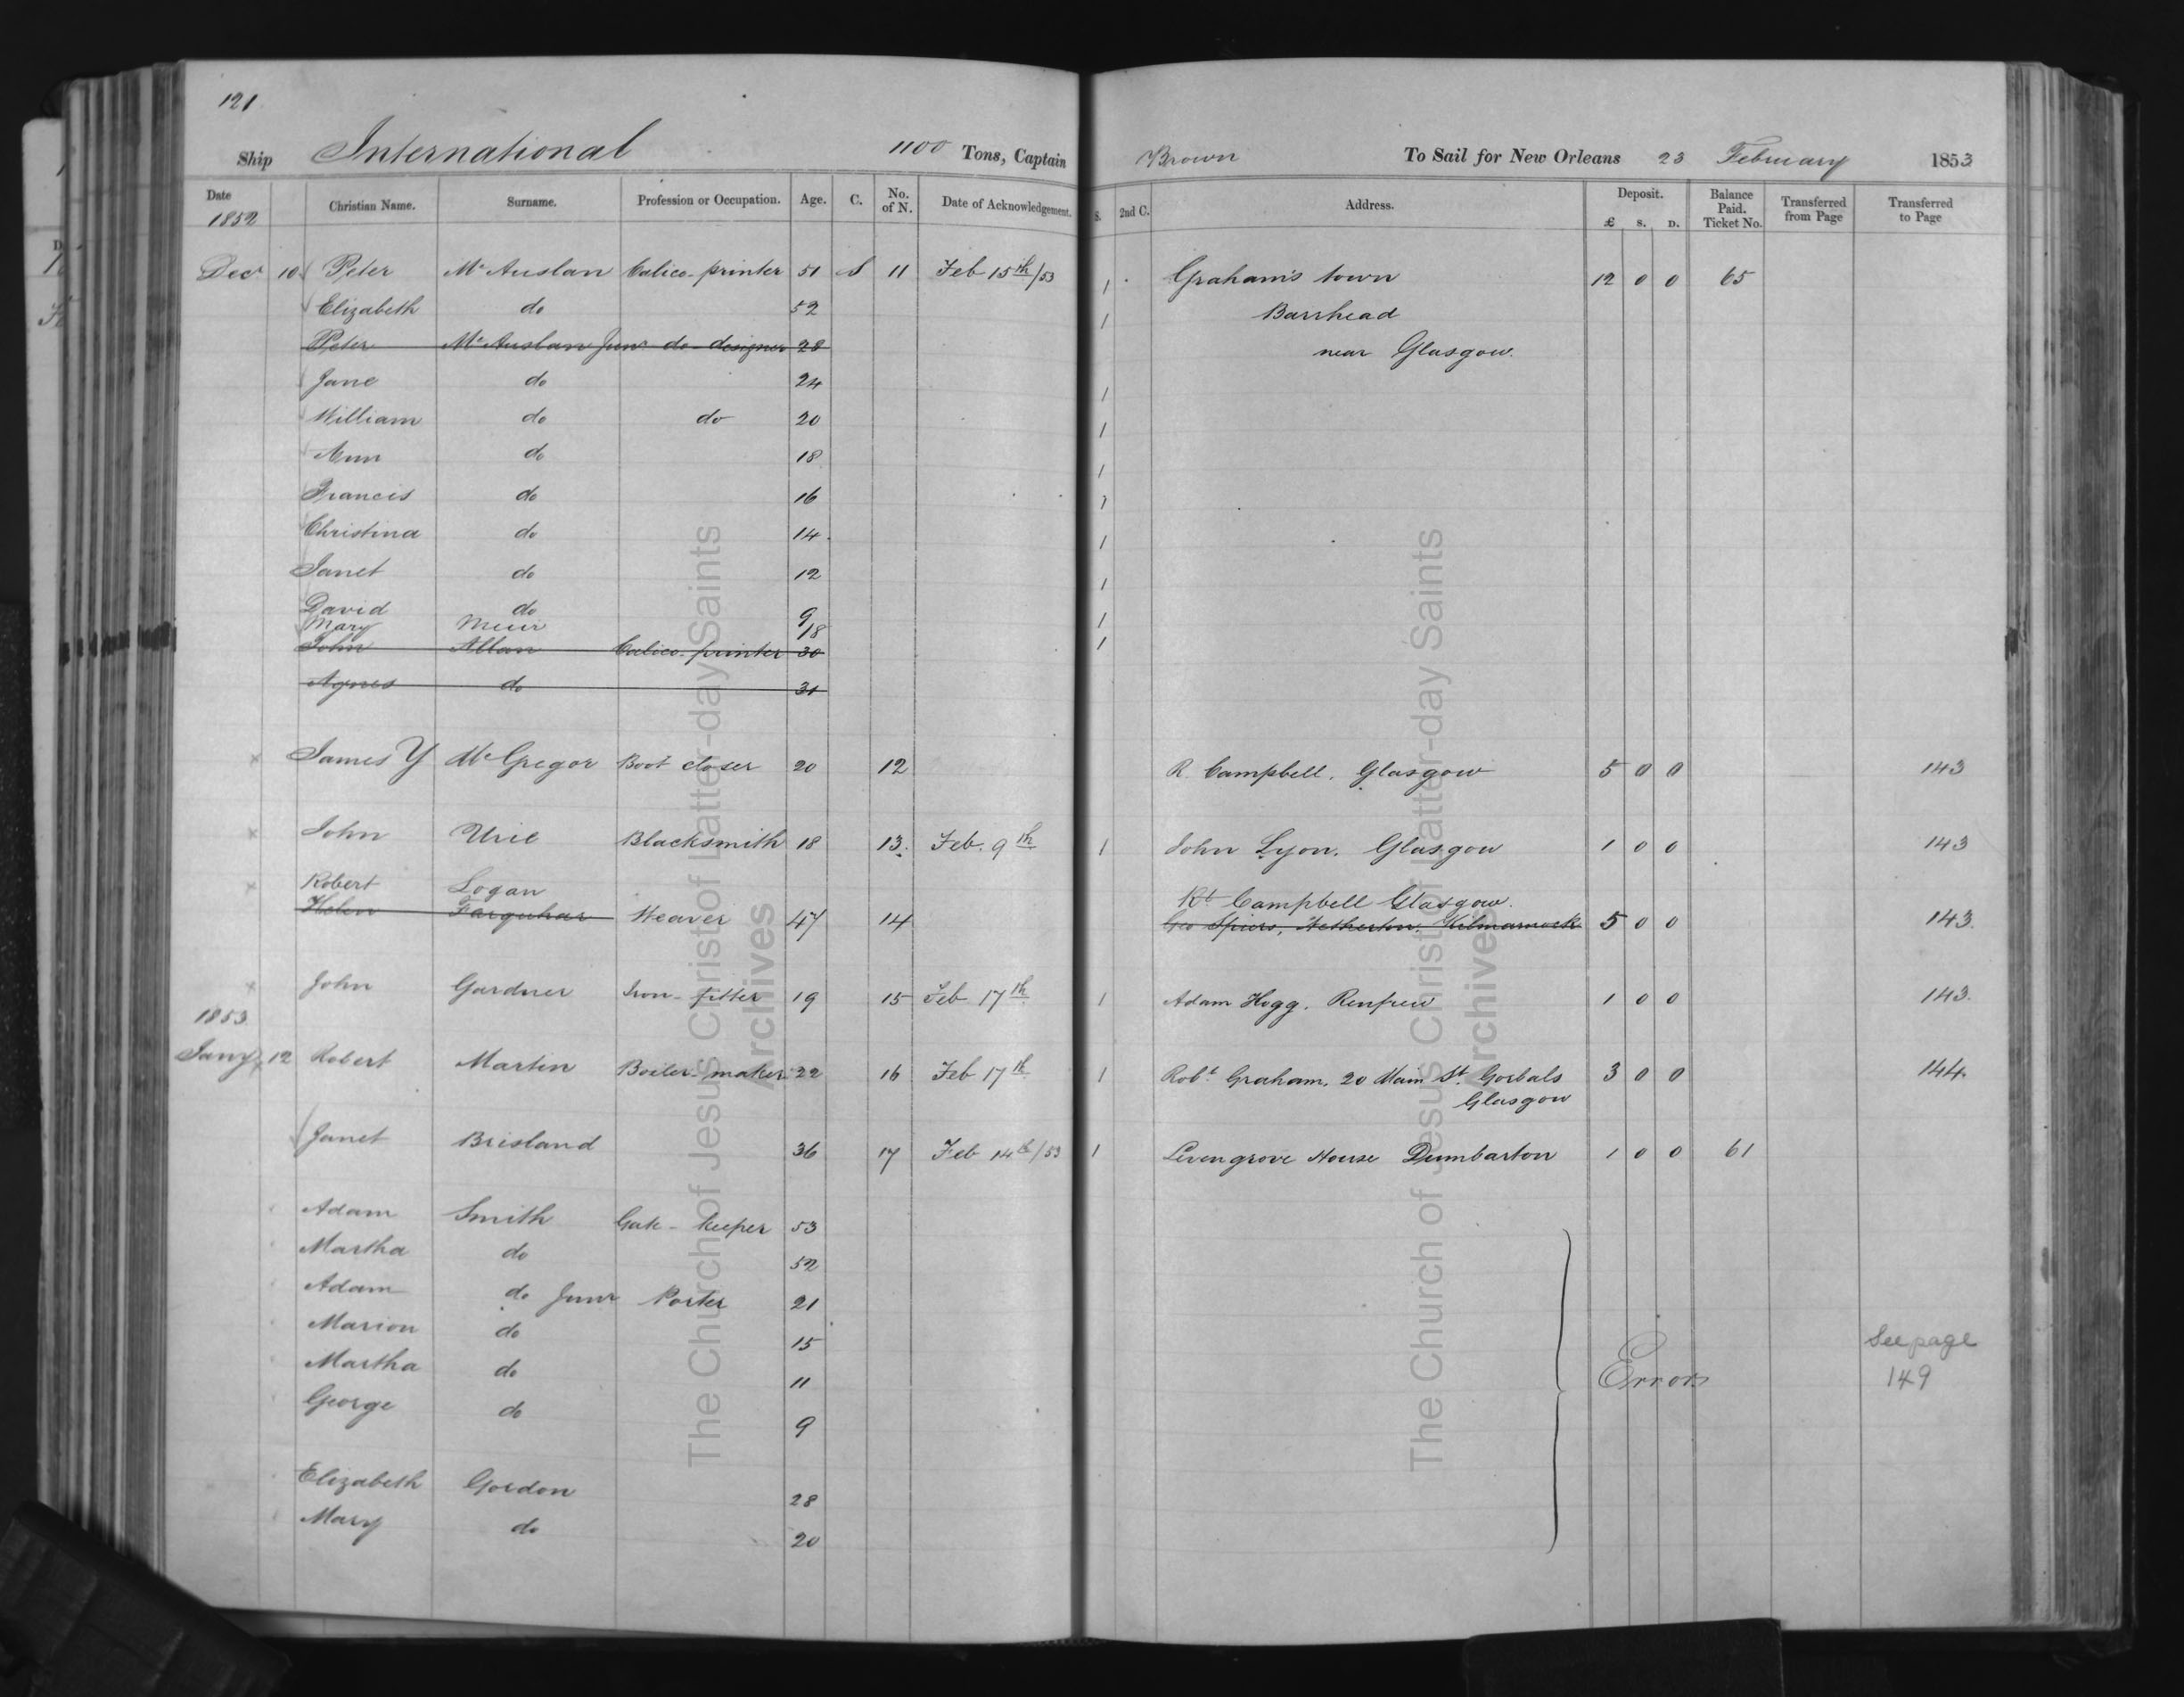 121
Ship International 1100 Tons, Captain Brown To Sail for New Orleans 23 February 1853
Date 1852 Christian Name. Surname. Profession or Occupation. Age. C. No. of N. Date of Acknowledgement. S. 2nd C. Address. Deposit. £ s. D. Balance Paid. Ticket No. Transferred from Page Transferred to Page
Decr 10 Peter McAuslan Calico-printer 51 S 11 Feb 15th/53 1 Graham's town 12 0 0 65
Elizabeth do 52 1 Barrhead
Peter McAuslan Junr do-designer 28 near Glasgow.
Jane do 24 1
William do do 20 1
Ann do 18 1
Francis do 16 1
Christina do 14 1
Janet do 12 1
David do 9 1
Mary Muir 18 1
John Allan Calico-printer 30
Agnes do 31
James Y McGregor Boot closer 20 12 R. Campbell. Glasgow 5 0 0 143
John Urie Blacksmith 18 13. Feb. 9th 1 John Lyon. Glasgow 1 0 0 143
Robert Logan Rt Campbell Glasgow.
Helen Farquhar Weaver 47 14 Geo Spiers, Netherton, Kilmarnock 5 0 0 143.
John Gardner Iron-fitter 19 15 Feb 17th 1 Adam Hogg. Renfrew 1 0 0 143.
1853
Jany 12 Robert Martin Boiler-maker 22 16 Feb 17th 1 Robt Graham. 20 Main St. Gorbals 3 0 0 144.
Glasgow
Janet Brisland 36 17 Feb 14th/53 1 Levengrove House Dumbarton 1 0 0 61
Adam Smith Gate-keeper 53
Martha do 52
Adam do Junr Porter 21
Marion do 15
Martha do 11
George do 9
Errors
See page
149
Elizabeth Gordon 28
Mary do 20
The Church of Jesus Christ of Latter-day Saints
Archives
The Church of Jesus Christ of Latter-day Saints
Archives